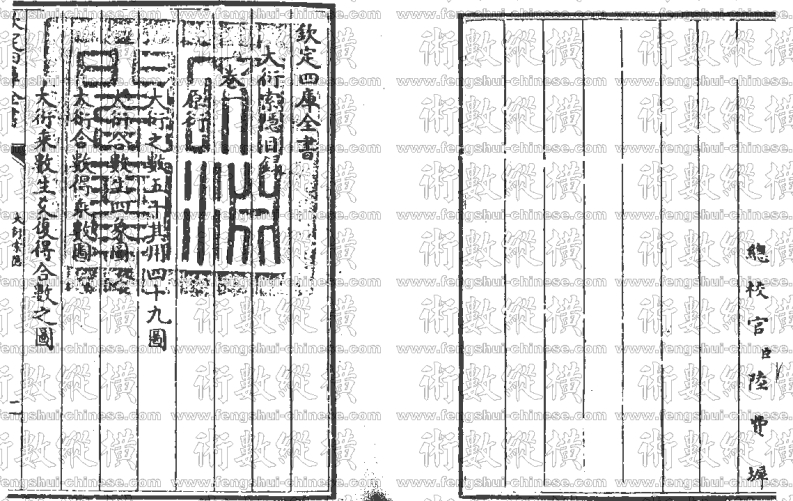 總校官臣陸費墀
欽定四庫全書
大衍索隱目錄
卷一
原衍
大衍之數五十其用四十九圖
大衍合數生四象圖
大衍合數得乘數圖
大衍乘數生爻復得合數之圖
欽定四庫全書
大衍索隱
一
術數縱橫
www.fengshui-chinese.com